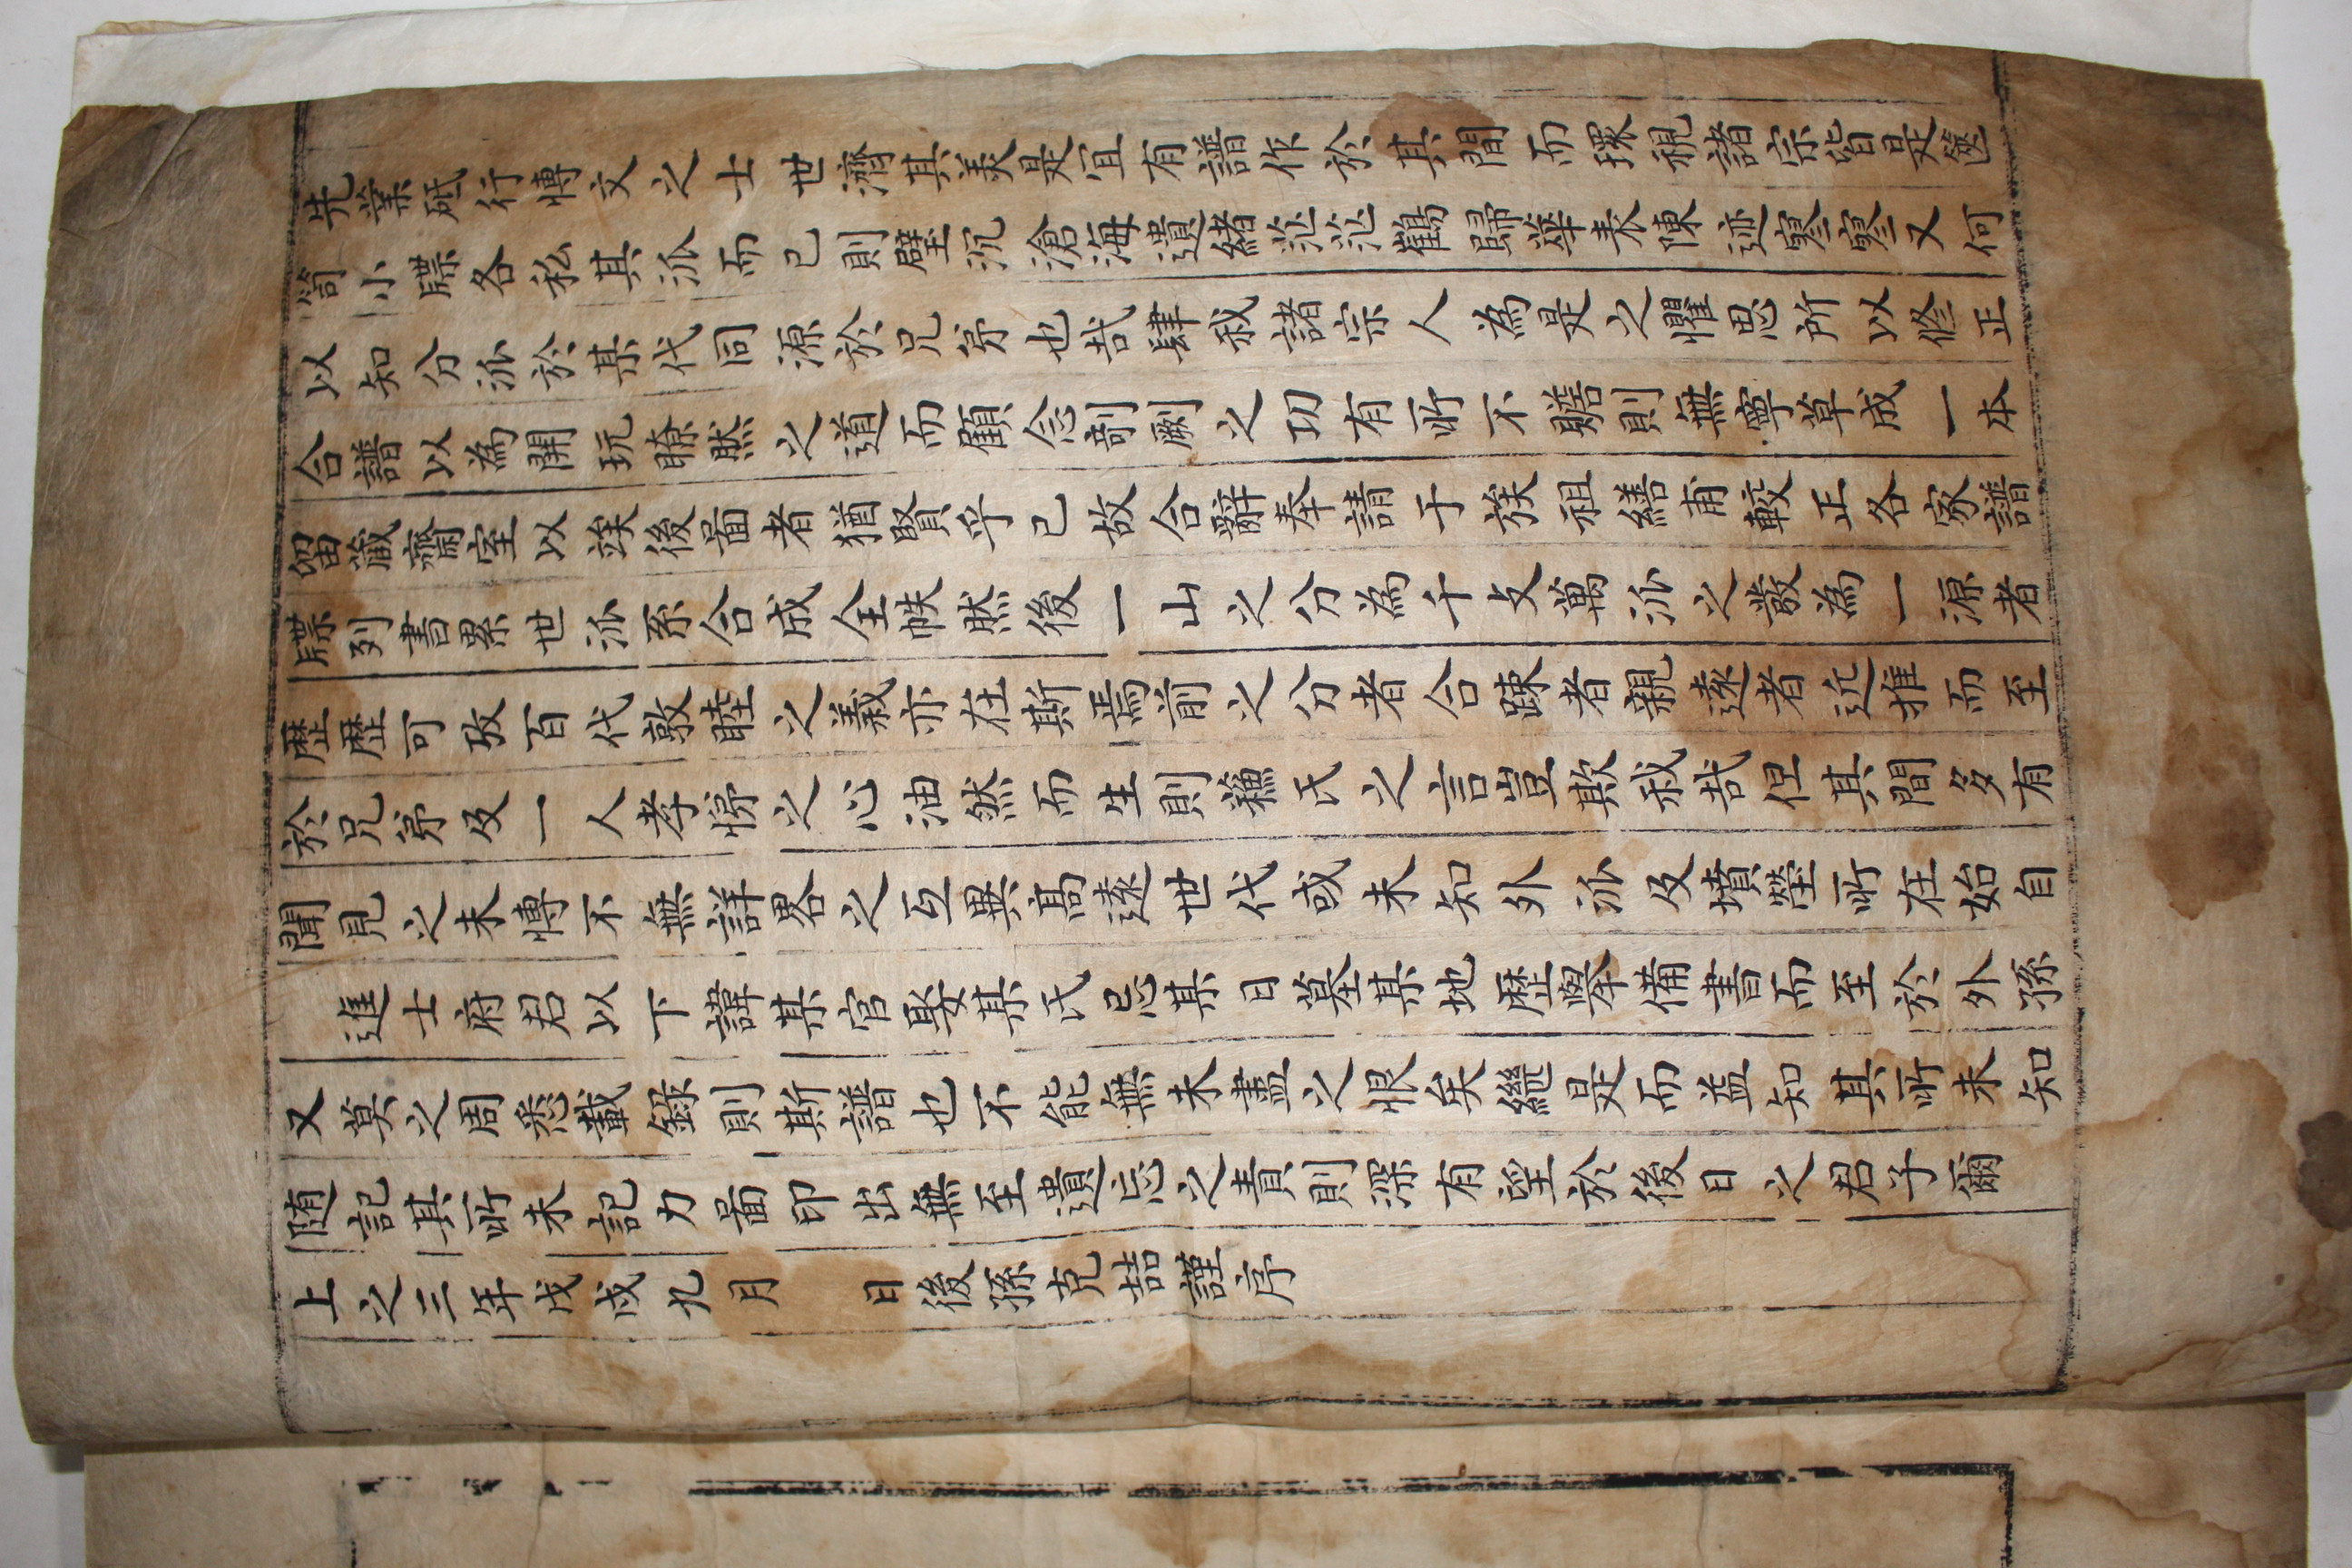 先業砥行博文之士世濟其美是宜有譜作於其間而探視諸宗皆是篋
笥小牒各私其派而已則壁沉滄海遺緒茫茫鶴歸華表陳迹寥寥又何
以知分派於某代同源於兄弟也哉肆我諸宗人為是之懼思所以修正
合譜以為開玩瞭然之道而顧念剞劂之功有所不贍則無寧草成一本
留藏齋室以俟後啚者猶賢乎已故合辭奉請于族祖繕甫較正各家譜
牒列書累世派系合成全帙然後一山之分為千支萬派之散為一源者
歷歷可攷百代敦睦之義亦在斯焉前之分者合踈者親遠者近推而至
於兄弟及一人孝悌之心油然而生則蘓氏之言豈欺我哉但其間多有
聞見之未博不無詳畧之互異髙遠世代或未知外派及墳塋所在始自
進士府君以下諱某官娶某氏忌某日墓某地歷舉備書而至於外孫
又莫之周悉載錄則斯譜也不能無未盡之恨矣繼是而益知其所未知
随記其所未記力啚印出無至遺忘之責則深有望於後日之君子爾
上之三年戊戌九月 日後孫克喆謹序